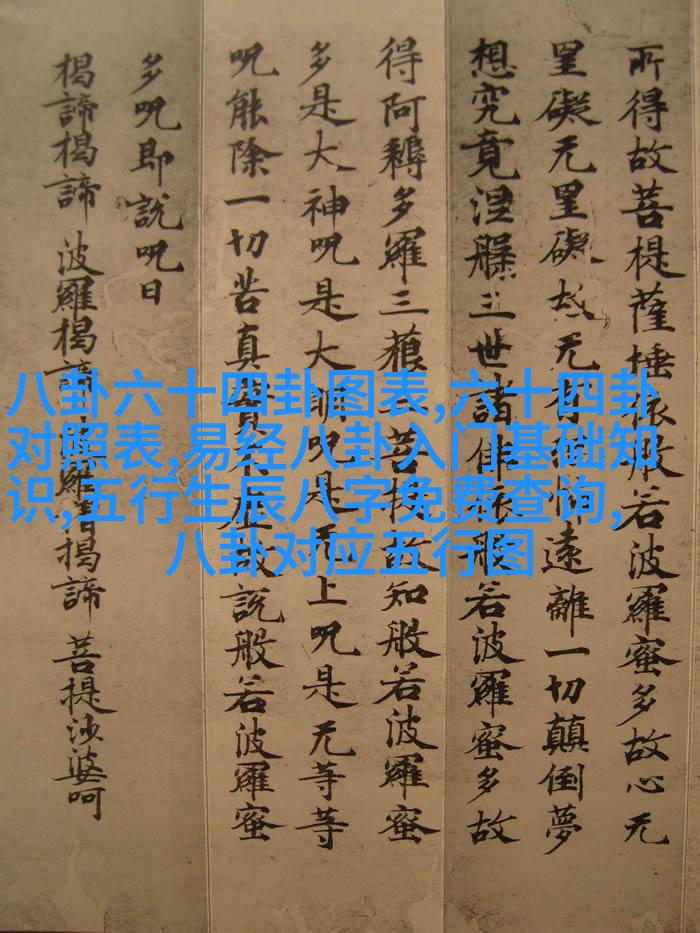 所得故菩提薩埵依般若波羅蜜多故心无
罣礙无罣礙故无有恐怖遠離一切顛倒夢
想究竟涅槃三世諸佛依般若波羅蜜多故
得阿耨多羅三藐三菩提故知般若波羅蜜
多是大神呪是大明呪是无上呪是无等等
呪能除一切苦真實不虛故說般若波羅蜜
多呪即說呪曰
揭諦揭諦 波羅揭諦 波羅僧揭諦 菩提沙婆呵
八卦六十四卦图表,六十四卦
对照表,易经八卦入门基础知
识,五行生辰八字免费查询,
八卦对应五行图